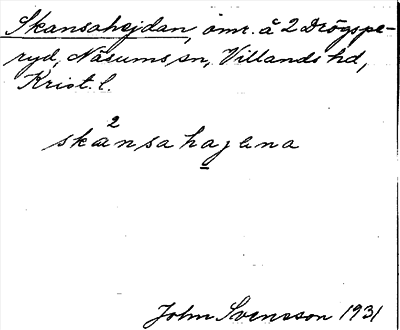 Skansahejdan, omr. å 2 Drögspe-
ryd, Näsums sn, Villands hd,
Krist. l.
2
skansahajena
John Svensson 1931